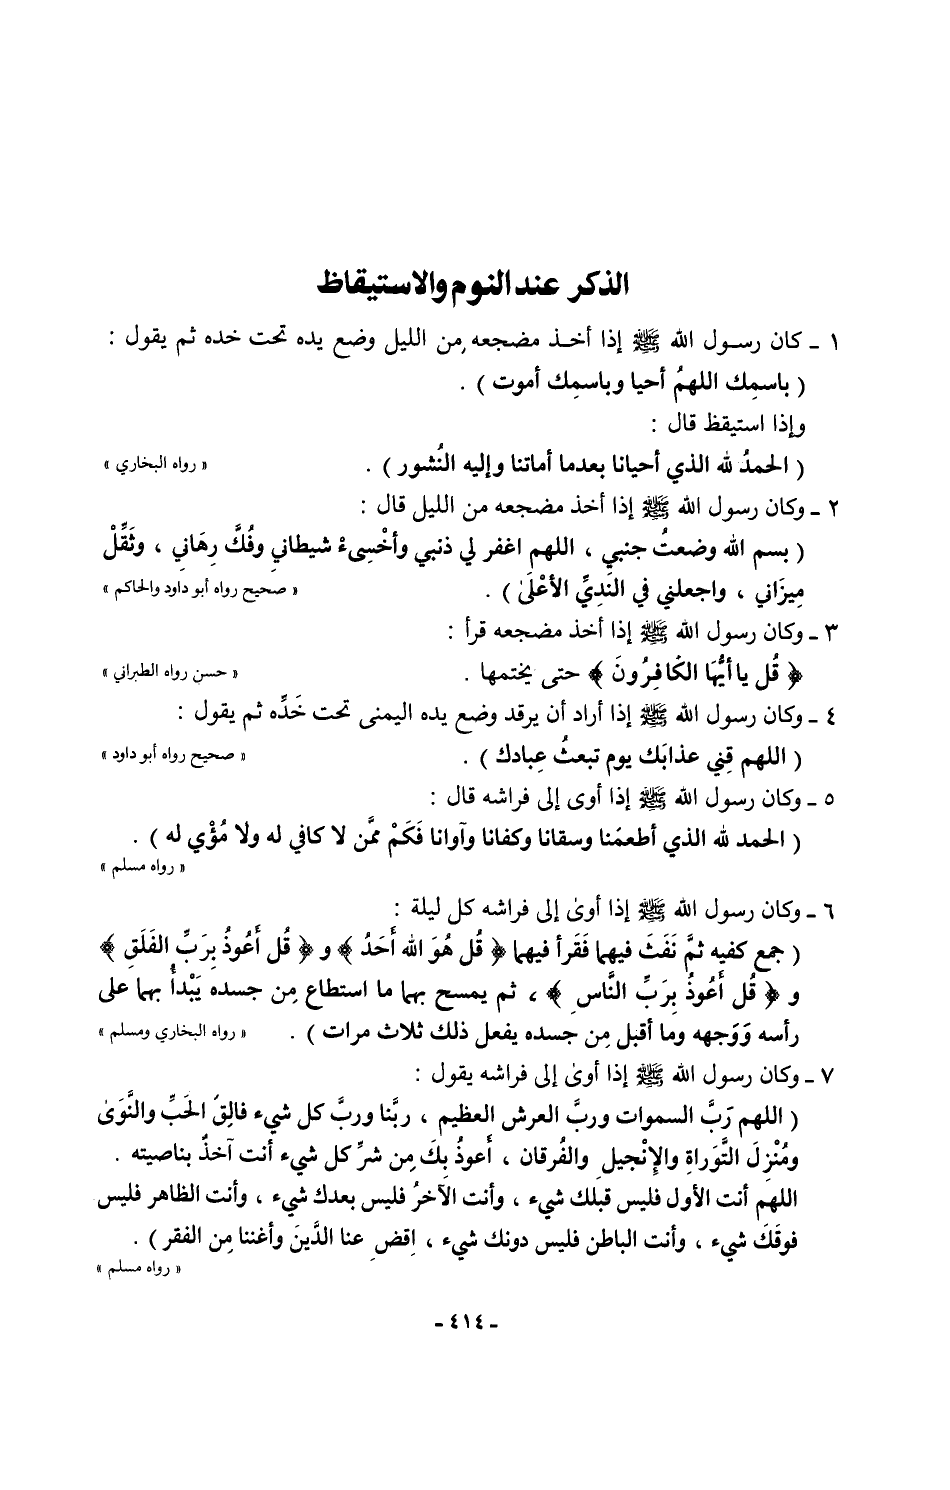 الذكر عند النوم والاستيقاظ
١ ـ كان رسول الله ﷺ إذا أخذ مضجعه من الليل وضع يده تحت خده ثم يقول :
( باسمِك اللهمُ أحيا وباسمِك أموت ) .
وإذا استيقظ قال :
( الحمدُ لله الذي أحيانا بعدما أماتنا وإليه النُشور ) . « رواه البخاري »
٢ ـ وكان رسول الله ﷺ إذا أخذ مضجعه من الليل قال :
( بسم الله وضعتُ جنبي ، اللهم اغفر لي ذنبي وأخْسِىءْ شيطاني وفُكَّ رِهَاني ، وثَقِّلْ
مِيزَاني ، واجعلني في النَدِيِّ الأعْلَىٰ ) . « صحيح رواه أبو داود والحاكم »
٣ ـ وكان رسول الله ﷺ إذا أخذ مضجعه قرأ :
﴿ قُل يا أيُّها الكَافِرُونَ ﴾ حتى يختمها . « حسن رواه الطبراني »
٤ ـ وكان رسول الله ﷺ إذا أراد أن يرقد وضع يده اليمنى تحت خَدِّه ثم يقول :
( اللهم قِني عذابَك يوم تبعثُ عِبادك ) . « صحيح رواه أبو داود »
٥ ـ وكان رسول الله ﷺ إذا أوى إلى فراشه قال :
( الحمد لله الذي أطعمَنا وسقانا وكفانا وآوانا فَكَمْ ممَّن لا كافي له ولا مُؤْي له ) .
« رواه مسلم »
٦ ـ وكان رسول الله ﷺ إذا أوىٰ إلى فراشه كل ليلة :
( جمع كفيه ثمَّ نَفَثَ فيهما فَقَرأ فيهما ﴿ قُل هُوَ الله أَحَدُ ﴾ و ﴿ قُل أَعُوذُ بِرَبِّ الفَلَقِ ﴾
و ﴿ قُل أَعُوذُ بِرَبِّ النَّاسِ ﴾ ، ثم يمسح بهما ما استطاع مِن جسده يَبْدأُ بهما على
رأسه وَوَجهه وما أقبل مِن جسده يفعل ذلك ثلاث مرات ) . « رواه البخاري ومسلم »
٧ ـ وكان رسول الله ﷺ إذا أوىٰ إلى فراشه يقول :
( اللهم رَبَّ السموات وربَّ العرش العظيم ، ربَّنا وربَّ كل شيء فالِقُ الحَبِّ والنَّوَىٰ
ومُنْزِلَ التَّوَراةِ والإنْجيلِ والفُرقان ، أعوذُ بِكَ مِن شرِّ كل شيء أنت آخذٌ بناصيته .
اللهم أنت الأول فليس قبلك شيء ، وأنت الآخرُ فليس بعدك شيء ، وأنت الظاهر فليس
فوقَكَ شيء ، وأنت الباطن فليس دونك شيء ، اِقضِ عنا الدَّينَ وأغننا مِن الفقر ) .
« رواه مسلم »
ـ ٤١٤ ـ